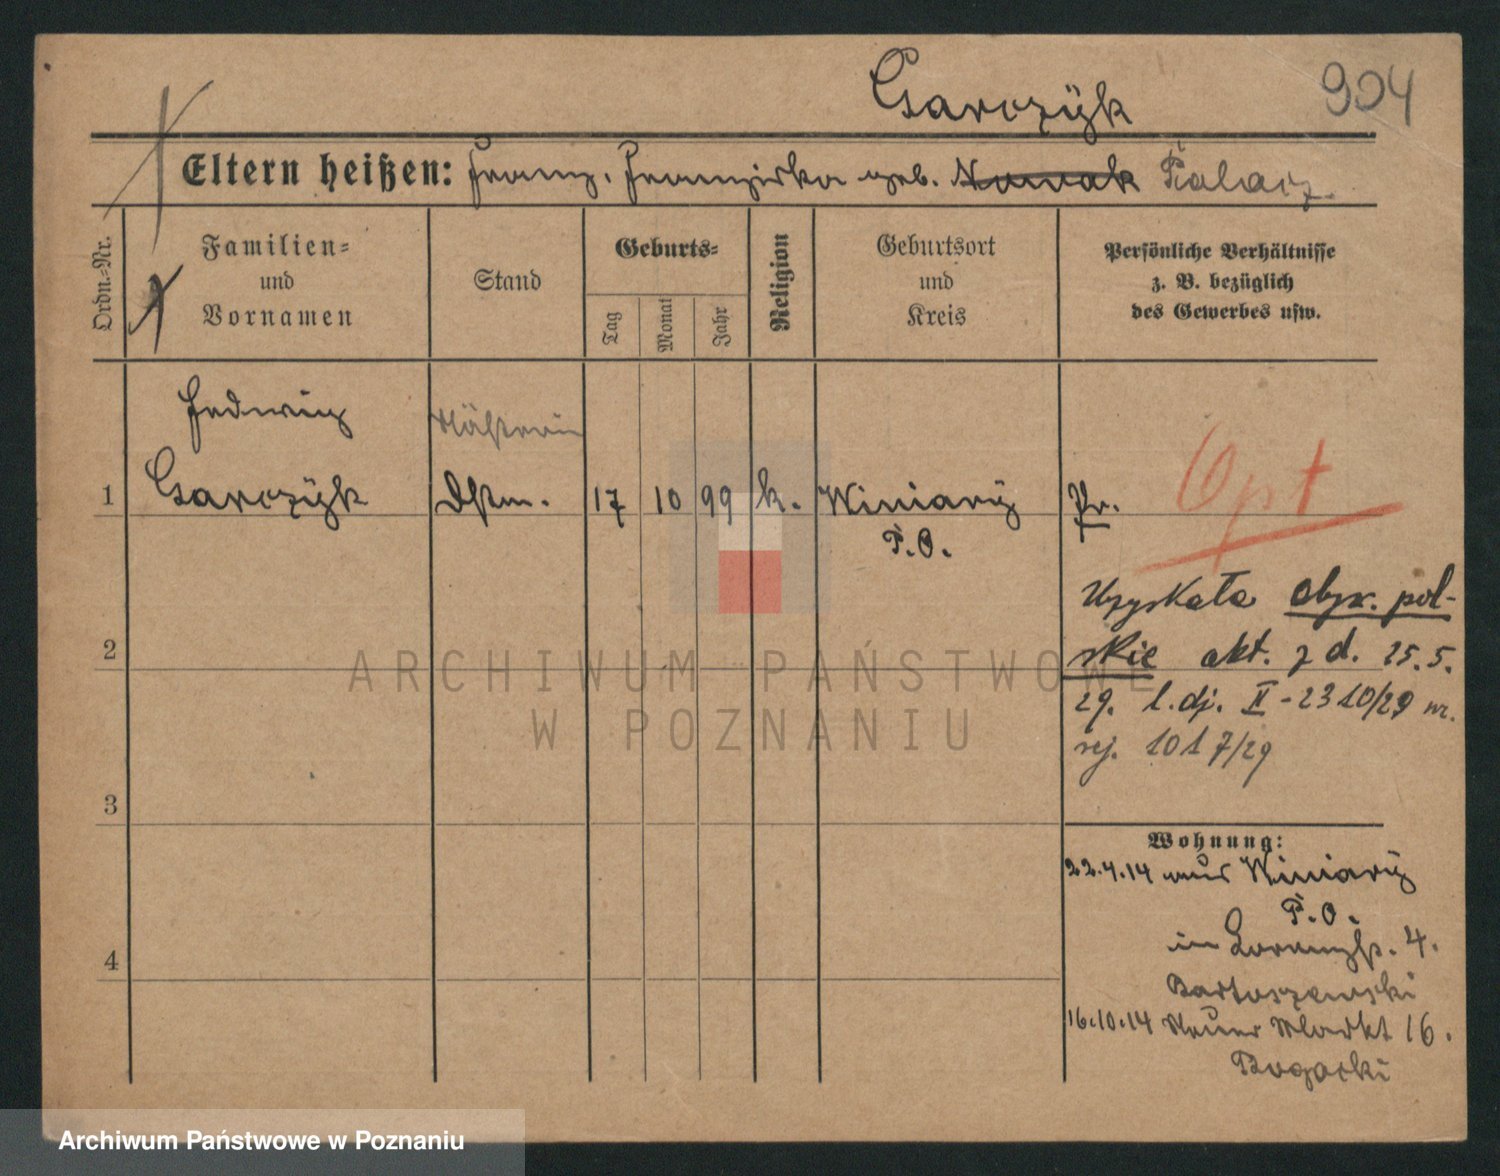 Garczyk
904
Eltern heißen: Franz, Franziska geb. Nowak Palacz
Ordn.-Nr.
Familien-
und
Vornamen
Stand
Geburts-
Tag
Monat
Jahr
Religion
Geburtsort
und
Kreis
Persönliche Verhältnisse
z. B. bezüglich
des Gewerbes usw.
Hedwig
Näherin
1 Garczyk Dstm. 17 10 99 k. Winiary Pr.
P.O.
Opt
Uzyskała obyw. pol-
skie akt. z d. 25.5.
29. l.dj. II-2310/29 nr.
rej. 1017/29
2
3
4
Wohnung:
22.4.14 aus Winiary
P.O.
in 4.
Bartoszewski
16.10.14 Neuer Markt 16.
Bogacki
ARCHIWUM PAŃSTWOWE
W POZNANIU
Archiwum Państwowe w Poznaniu